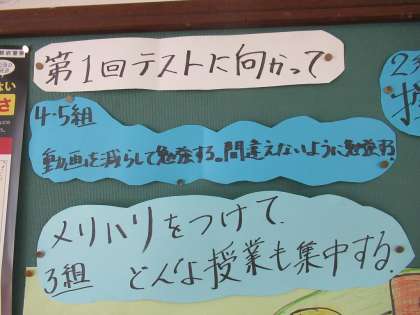 第1回テストに向かって
4・5組
動画を減らして勉強する。間違えないように勉強する
メリハリをつけて、
3組 どんな授業も集中する。